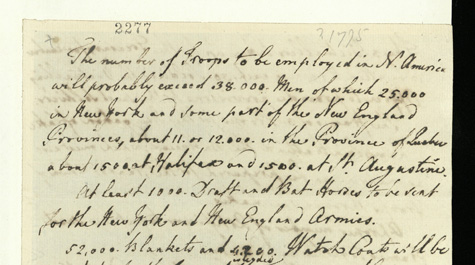 2277
The number of Troops to be employed in N. America
will probably exceed 38.000. Men of which 25,000
in New York and some part of the New England
Provinces, about 11. or 12.000. in the Province of Quebec
about 1500 at Halifax and 1500. at St. Augustine.
At least 1000. Draft and Bat Horses to be sent
for the New York and New England Armies.
52,000. Blankets and Watch Coats will be